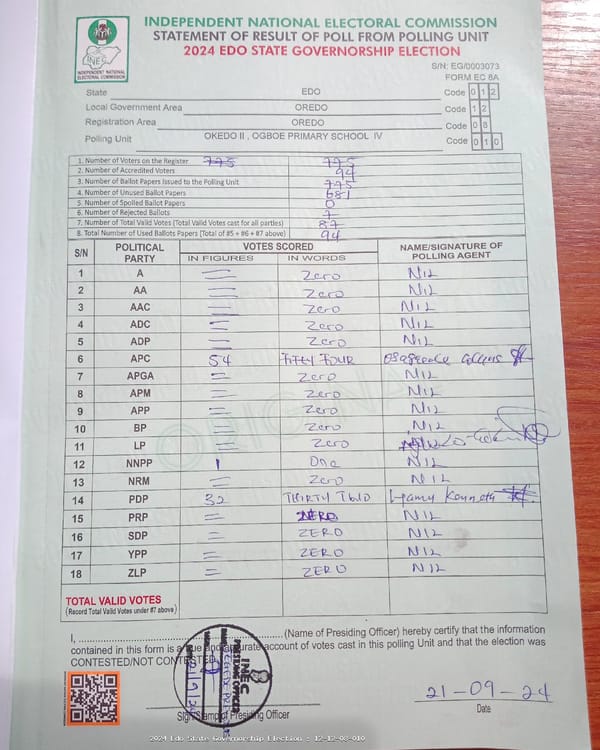 INDEPENDENT NATIONAL ELECTORAL COMMISSION
STATEMENT OF RESULT OF POLL FROM POLLING UNIT
2024 EDO STATE GOVERNORSHIP ELECTION
INEC
INDEPENDENT NATIONAL ELECTORAL COMMISSION
S/N: EG/0003073
FORM EC 8A
State EDO Code 0 1 2
Local Government Area OREDO Code 1 2
Registration Area OREDO Code 0 8
Polling Unit OKEDO II , OGBOE PRIMARY SCHOOL IV Code 0 1 0
1. Number of Voters on the Register 775 775
2. Number of Accredited Voters 94
3. Number of Ballot Papers Issued to the Polling Unit 775
4. Number of Unused Ballot Papers 681
5. Number of Spoiled Ballot Papers 0
6. Number of Rejected Ballots 7
7. Number of Total Valid Votes (Total Valid Votes cast for all parties) 87
8. Total Number of Used Ballots Papers (Total of #5 + #6 + #7 above) 94
S/N POLITICAL PARTY VOTES SCORED NAME/SIGNATURE OF POLLING AGENT
IN FIGURES IN WORDS
1 A Zero NIL
2 AA Zero NIL
3 AAC Zero NIL
4 ADC Zero NIL
5 ADP Zero NIL
6 APC 54 FIFTY FOUR
7 APGA Zero NIL
8 APM Zero NIL
9 APP Zero NIL
10 BP Zero NIL
11 LP Zero
12 NNPP 1 One NIL
13 NRM Zero NIL
14 PDP 32 THIRTY TWO Kenneth
15 PRP ZERO NIL
16 SDP ZERO NIL
17 YPP ZERO NIL
18 ZLP ZERO NIL
TOTAL VALID VOTES
(Record Total Valid Votes under #7 above)
I, (Name of Presiding Officer) hereby certify that the information
contained in this form is a true and accurate account of votes cast in this polling Unit and that the election was
CONTESTED/NOT CONTESTED
INEC
PRESIDING OFFICER
21-09-24
Sign/Stamp of Presiding Officer Date
2024 Edo State Governorship Election : 12-12-08-010